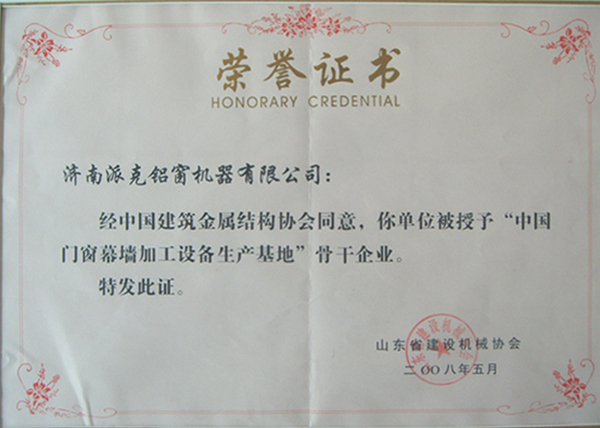 荣誉证书
HONORARY CREDENTIAL
济南派克铝窗机器有限公司：
经中国建筑金属结构协会同意，你单位被授予“中国
门窗幕墙加工设备生产基地”骨干企业。
特发此证。
山东省建设机械协会
二OO八年五月